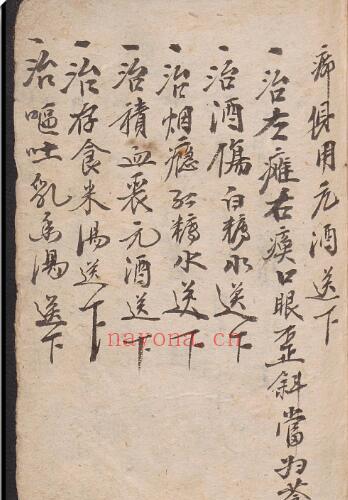 病俱用元酒送下
一治左瘫右痪口眼歪斜當归
一治酒傷白糖水送下
一治烟瘾红糖水送下
一治積血裹元酒送下
一治存食米湯送下
一治嘔吐乳姜湯送下
nayona.cn